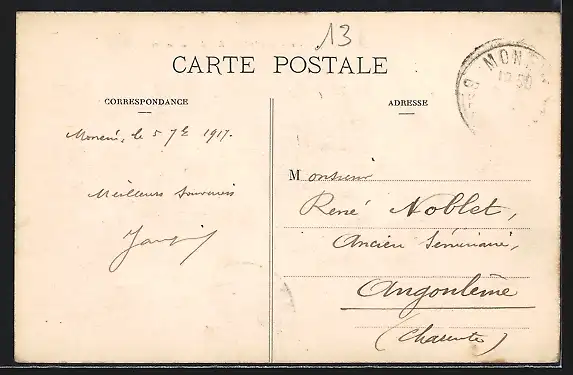 13
CARTE POSTALE
CORRESPONDANCE
Monein, le 5 7bre 1917.
Meilleurs souvenirs
ADRESSE
Monsieur
René Noblet,
Ancien Séminaire,
Angoulême
(Charente)
MONEIN